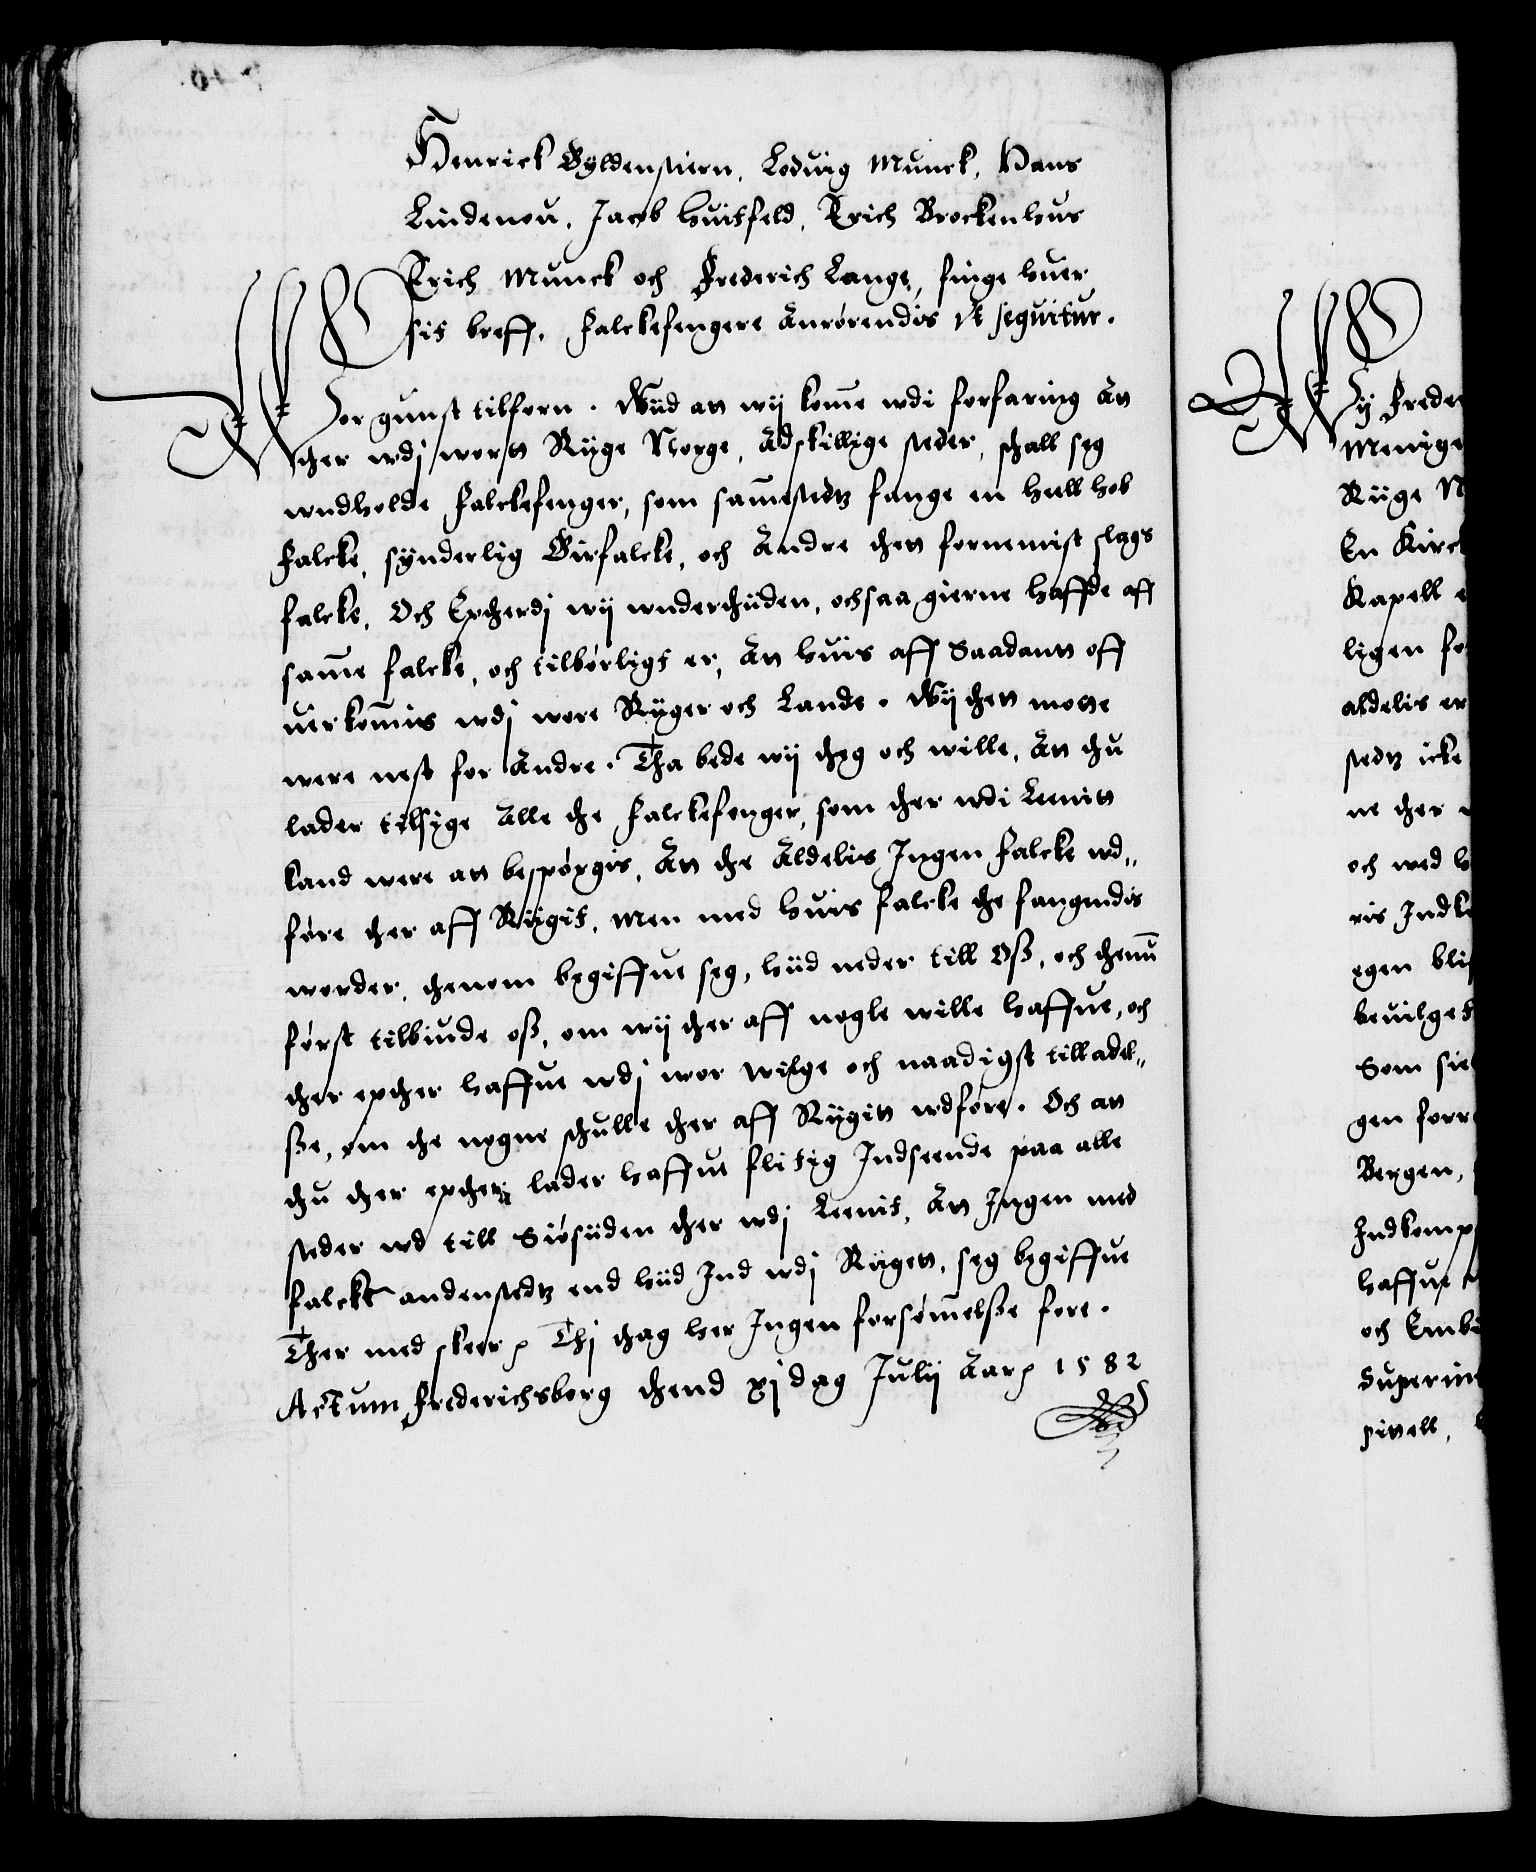 Henrick Gyldenstiern, Loduig Munck, Hans
Lindenou, Jacob Huitfeld, Erich Brockenhus
Erich Munck och Frederich Lange, finge huer
sit breff, Falckefengere Anrørendis Vt sequitur.
Wor gunst tilforn. Wiid att wij kom̄e vdi forfaring At
ther vdj wortt Riige Norge, Adskillige steder, schall seg
vndholde Falckefenger, som sam̄estedtz fange en heell hob
Falcke, synderlig Girfalcke, och Andre thett fornemist slags
falcke, Och Epcherdj wij vnderthiiden, ochsaa gierne haffde aff
sam̄e falcke, och tilbørligt er, At huis aff Saadantt off
uerkom̄is vdj wore Riiger och Lande. Wij thett motte
were nest for Andre. Tha bede wij theg och wille, At thu
lader tilsige Alle the Falckefenger, som ther vdi Leenitt
kand were att bespørgis, At the Aldelis Jngen Falcke vd„
føre ther aff Riigit, Men med huis falcke the fangendis
worder, thenom begiffue seg, hiid neder till Oß, och thenū
først tilbiude oß, om wij ther aff nogle wille haffue, och
ther epther haffue vdj wor wilge och naadigst tilladel„
ße, om the nogne schulle ther aff Riigitt vdføre. Och att
thu ther epther lader haffue flitig Jndseende paa alle
steder vd till Siøsiiden ther vdj Leenit, At Jngen med
falcke andenstedtz end hiid Jnd vdj Riigett, seg begiffue
Ther med skeer Thj thag her Jngen forsøm̄elße fore.
Actum Frederichsborg thend xj dag Julij Aar 1582
Wij Freder
Menige
Riige N
En Kirc
Kapell e
ligen fo
aldelis er
stedtz icke
ne ther
och wed h
ris Jndk
egen bli
beuilget
Som sie
gen forr
Bergen,
Jndkomp
haffue
och Emb
Superin
pittell,